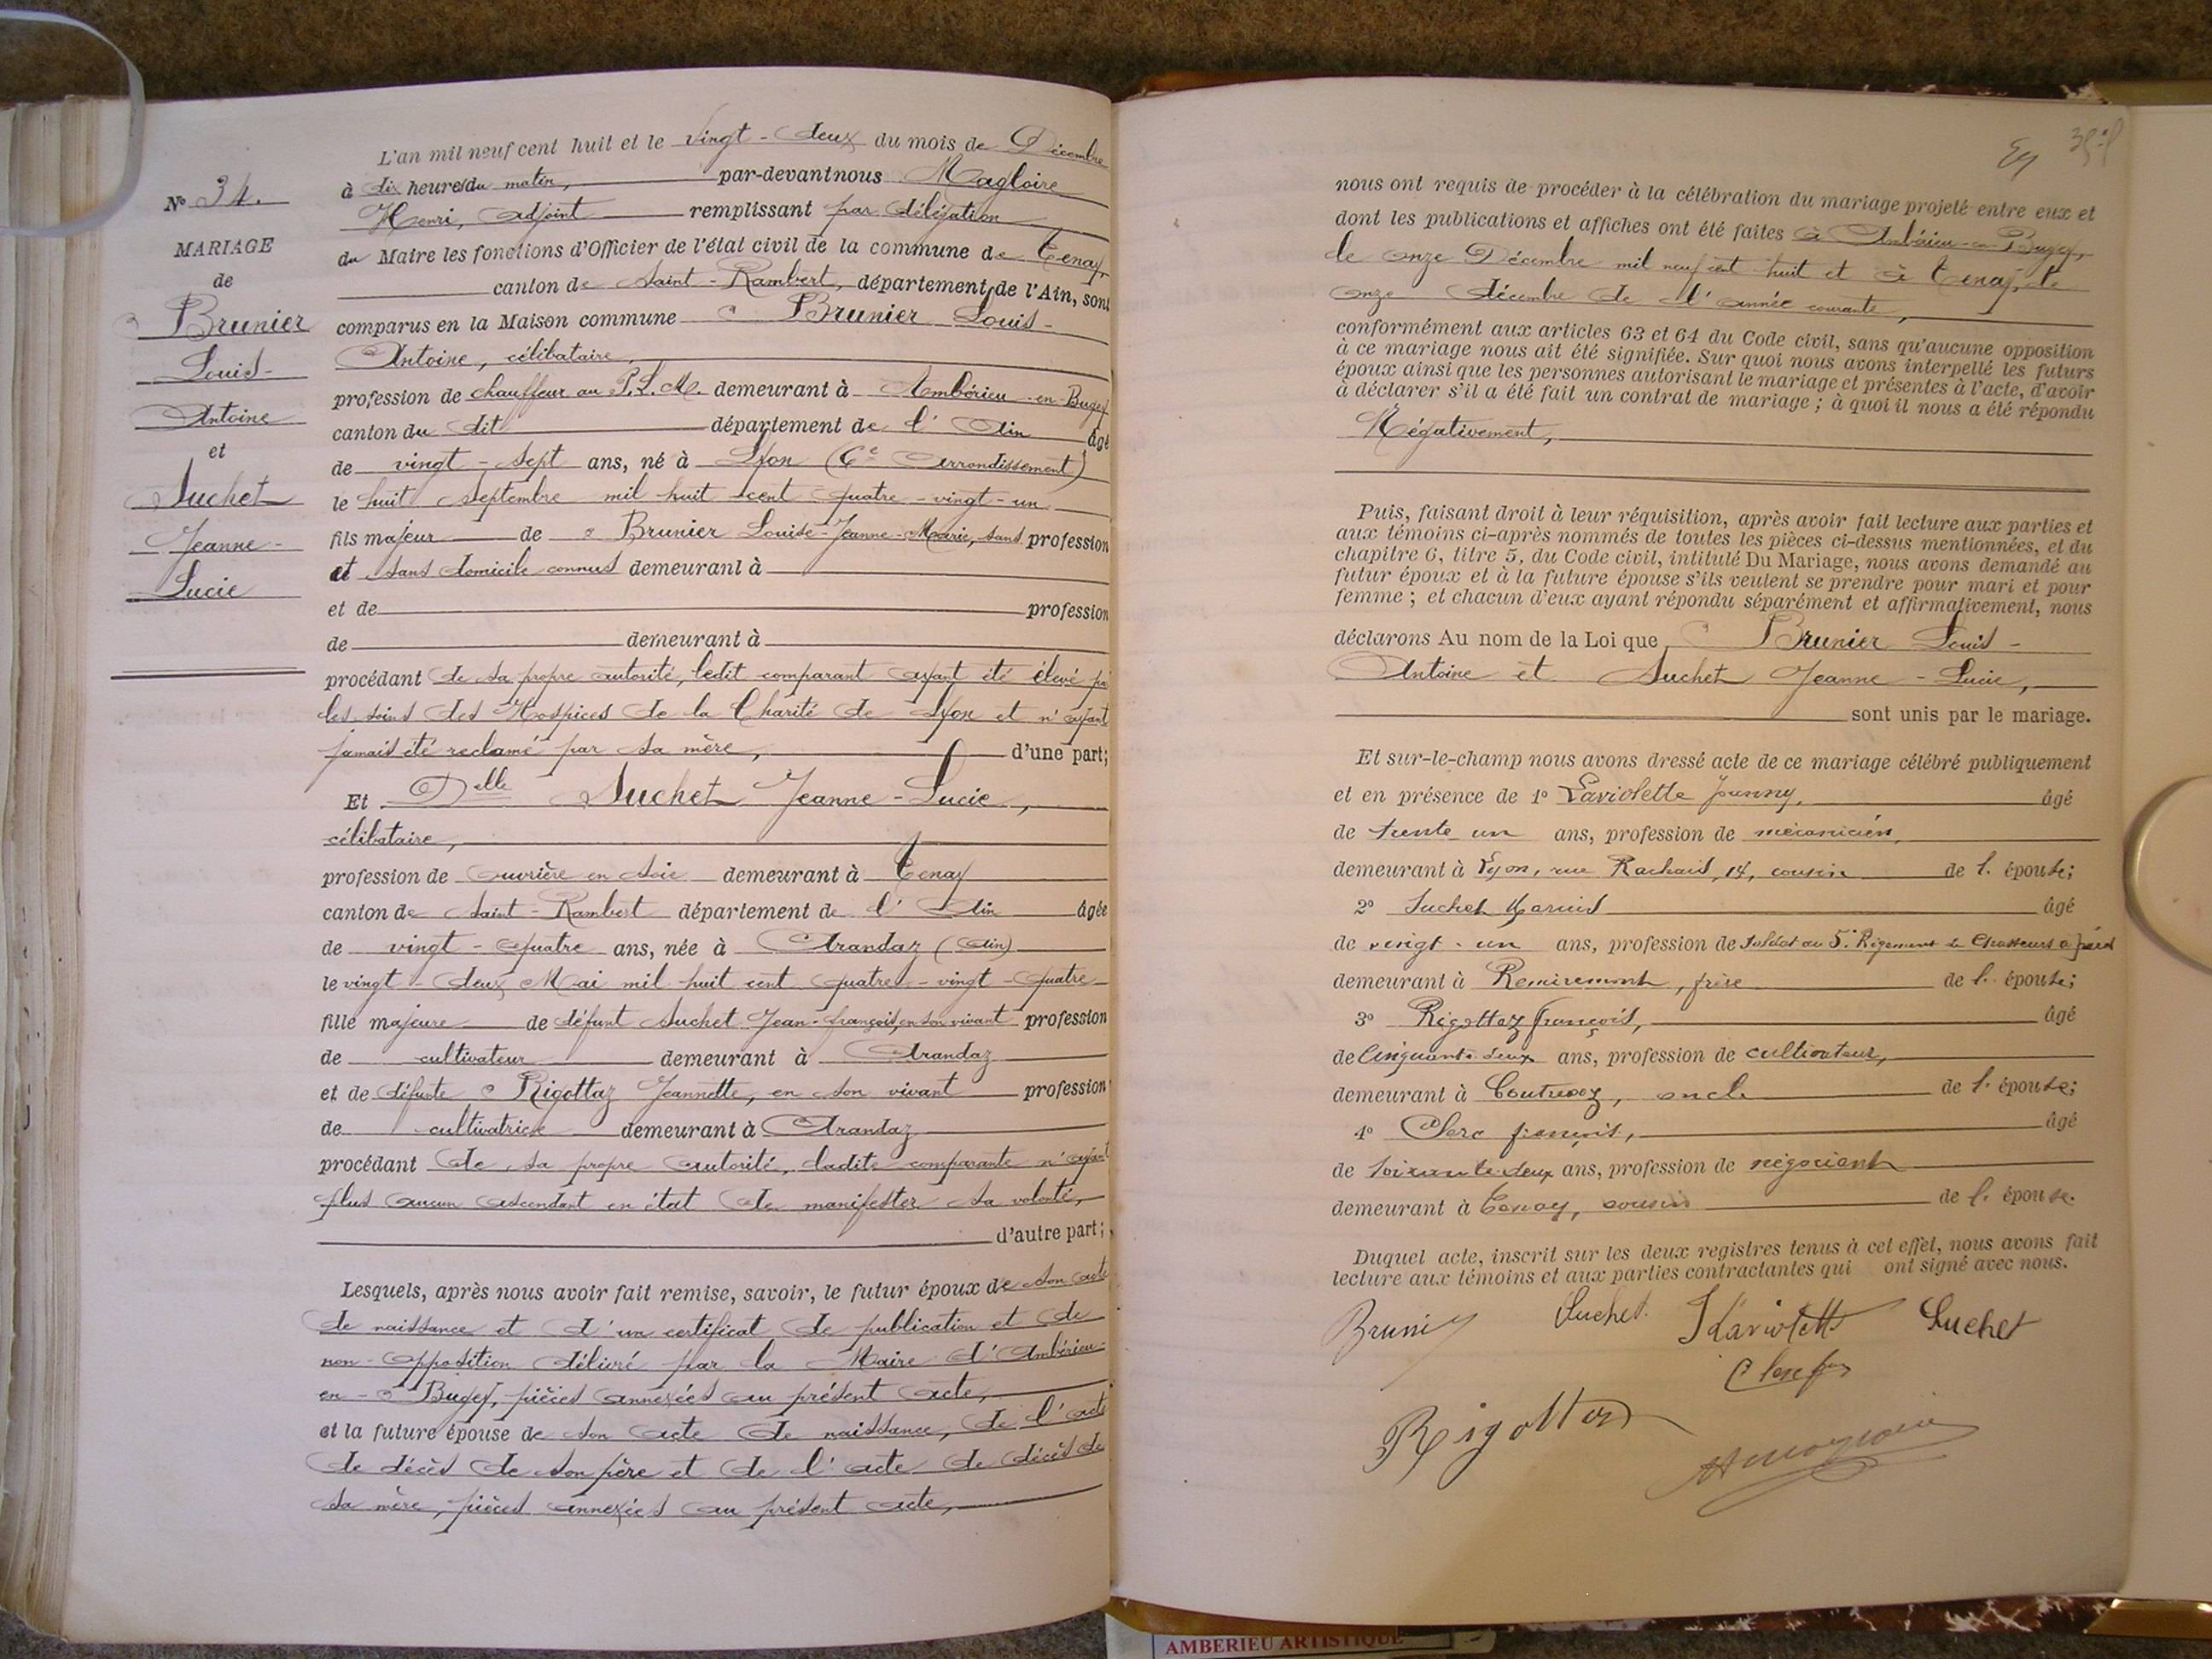 N° 34.
MARIAGE
de
Brunier
Louis-
Antoine
et
Suchet
Jeanne-
Lucie
L'an mil neuf cent huit et le vingt-deux du mois de Décembre
à dix heures du matin, par-devant nous Magloire
Henri, adjoint remplissant par délégation
du Maire les fonctions d'Officier de l'état civil de la commune de Tenay,
canton de Saint-Rambert, département de l'Ain, sont
comparus en la Maison commune Brunier Louis-
Antoine, célibataire,
profession de chauffeur au P. L. M. demeurant à Ambérieu-en-Bugey
canton du dit département de l'Ain âgé
de vingt-sept ans, né à Lyon (6e arrondissement)
le huit septembre mil huit cent quatre-vingt-un
fils majeur de Brunier Louise-Jeanne-Marie, sans profession
et sans domicile connus demeurant à
et de profession
de demeurant à
procédant de sa propre autorité, ledit comparant ayant été élevé par
les soins des Hospices de la Charité de Lyon et n'ayant
jamais été reclamé par sa mère, d'une part;
Et Delle Suchet Jeanne-Lucie,
célibataire,
profession de ouvrière en soie demeurant à Tenay
canton de Saint-Rambert département de l'Ain âgée
de vingt-quatre ans, née à Arandaz (Ain)
le vingt-deux Mai mil huit cent quatre-vingt-quatre
fille majeure de défunt Suchet Jean-françois, en son vivant profession
de cultivateur demeurant à Arandaz
et de défunte Rigottaz Jeannette, en son vivant profession
de cultivatrice demeurant à Arandaz
procédant de sa propre autorité, ladite comparante n'ayant
plus aucun ascendant en état de manifester sa volonté,
d'autre part;
Lesquels, après nous avoir fait remise, savoir, le futur époux de son acte
de naissance et d'un certificat de publication et de
non-opposition délivré par la Maire d'Ambérieu-
en-Bugey, pièces annexées au présent acte,
et la future épouse de son acte de naissance, de l'acte
de décès de son père et de l'acte de décès de
sa mère, pièces annexées au présent acte,
nous ont requis de procéder à la célébration du mariage projeté entre eux et
dont les publications et affiches ont été faites à Ambérieu-en-Bugey,
le onze Décembre mil neuf cent huit et à Tenay, le
onze décembre de l'année courante,
conformément aux articles 63 et 64 du Code civil, sans qu'aucune opposition
à ce mariage nous ait été signifiée. Sur quoi nous avons interpellé les futurs
époux ainsi que les personnes autorisant le mariage et présentes à l'acte, d'avoir
à déclarer s'il a été fait un contrat de mariage; à quoi il nous a été répondu
Négativement,
Puis, faisant droit à leur réquisition, après avoir fait lecture aux parties et
aux témoins ci-après nommés de toutes les pièces ci-dessus mentionnées, et du
chapitre 6, titre 5, du Code civil, intitulé Du Mariage, nous avons demandé au
futur époux et à la future épouse s'ils veulent se prendre pour mari et pour
femme; et chacun d'eux ayant répondu séparément et affirmativement, nous
déclarons Au nom de la Loi que Brunier Louis-
Antoine et Suchet Jeanne-Lucie,
sont unis par le mariage.
Et sur-le-champ nous avons dressé acte de ce mariage célébré publiquement
et en présence de 1° Laviolette Joanny, âgé
de trente un ans, profession de mécanicien,
demeurant à Lyon, rue Rachais, 14, cousin de l'épouse;
2° Suchet Marius âgé
de vingt-un ans, profession de soldat au 5e Régiment de Chasseurs à pied
demeurant à Remiremont, frère de l'épouse;
3° Rigottaz françois, âgé
de Cinquante deux ans, profession de cultivateur,
demeurant à oncle de l'épouse;
4° Clerc françois, âgé
de soixante-deux ans, profession de négociant
demeurant à Tenay, cousin de l'épouse.
Duquel acte, inscrit sur les deux registres tenus à cet effet, nous avons fait
lecture aux témoins et aux parties contractantes qui ont signé avec nous.
Brunier Suchet J Laviolette Suchet
Clerc fçois
Rigottaz
AMBERIEU ARTISTIQUE